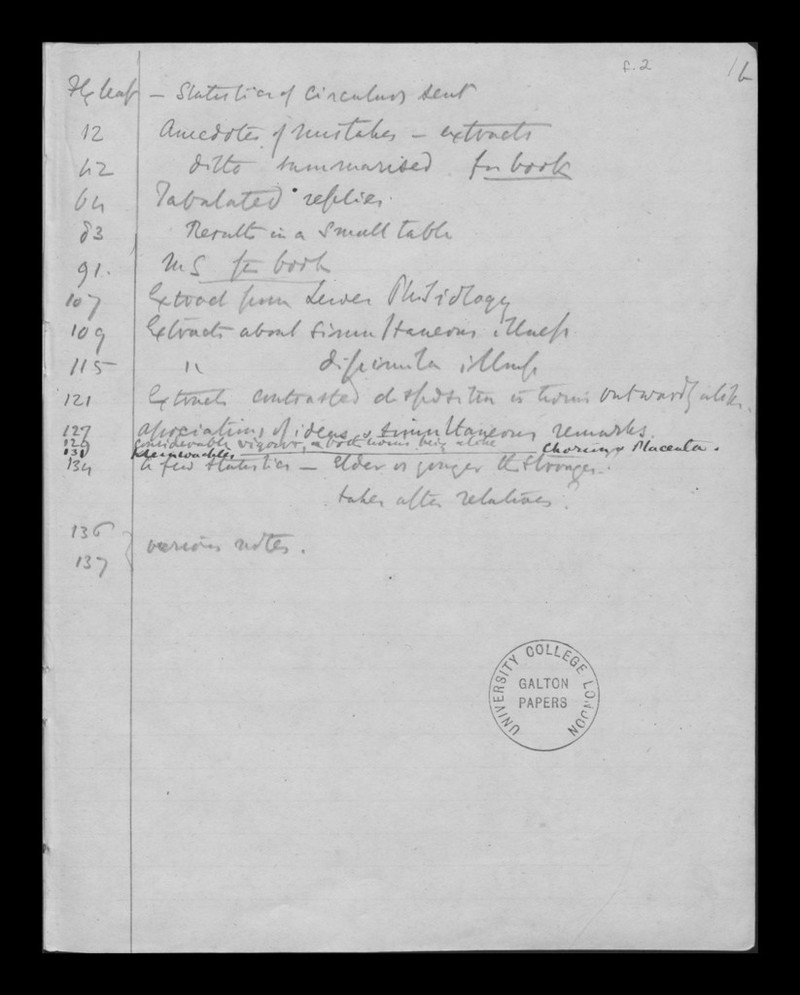 f. 2
Fly leaf — Statistics of Circulars sent
12 Anecdotes of mistakes — extracts
42 ditto summarised for book
64 Tabulated replies.
83 Results in a small table
91. MS for book
107 Extract from Lewes Physiology
109 Extracts about simultaneous illness
115 " dissimilar illness
121 Extracts contrasted disposition in twins outwardly alike.
127 associations of ideas & simultaneous remarks.
129 considerable vigour, in both twins being alike
131 Chorion & Placenta.
134 A few statistics — Elder or younger the stronger —.
takes after relatives?
136
137 various notes.
UNIVERSITY COLLEGE LONDON
GALTON
PAPERS